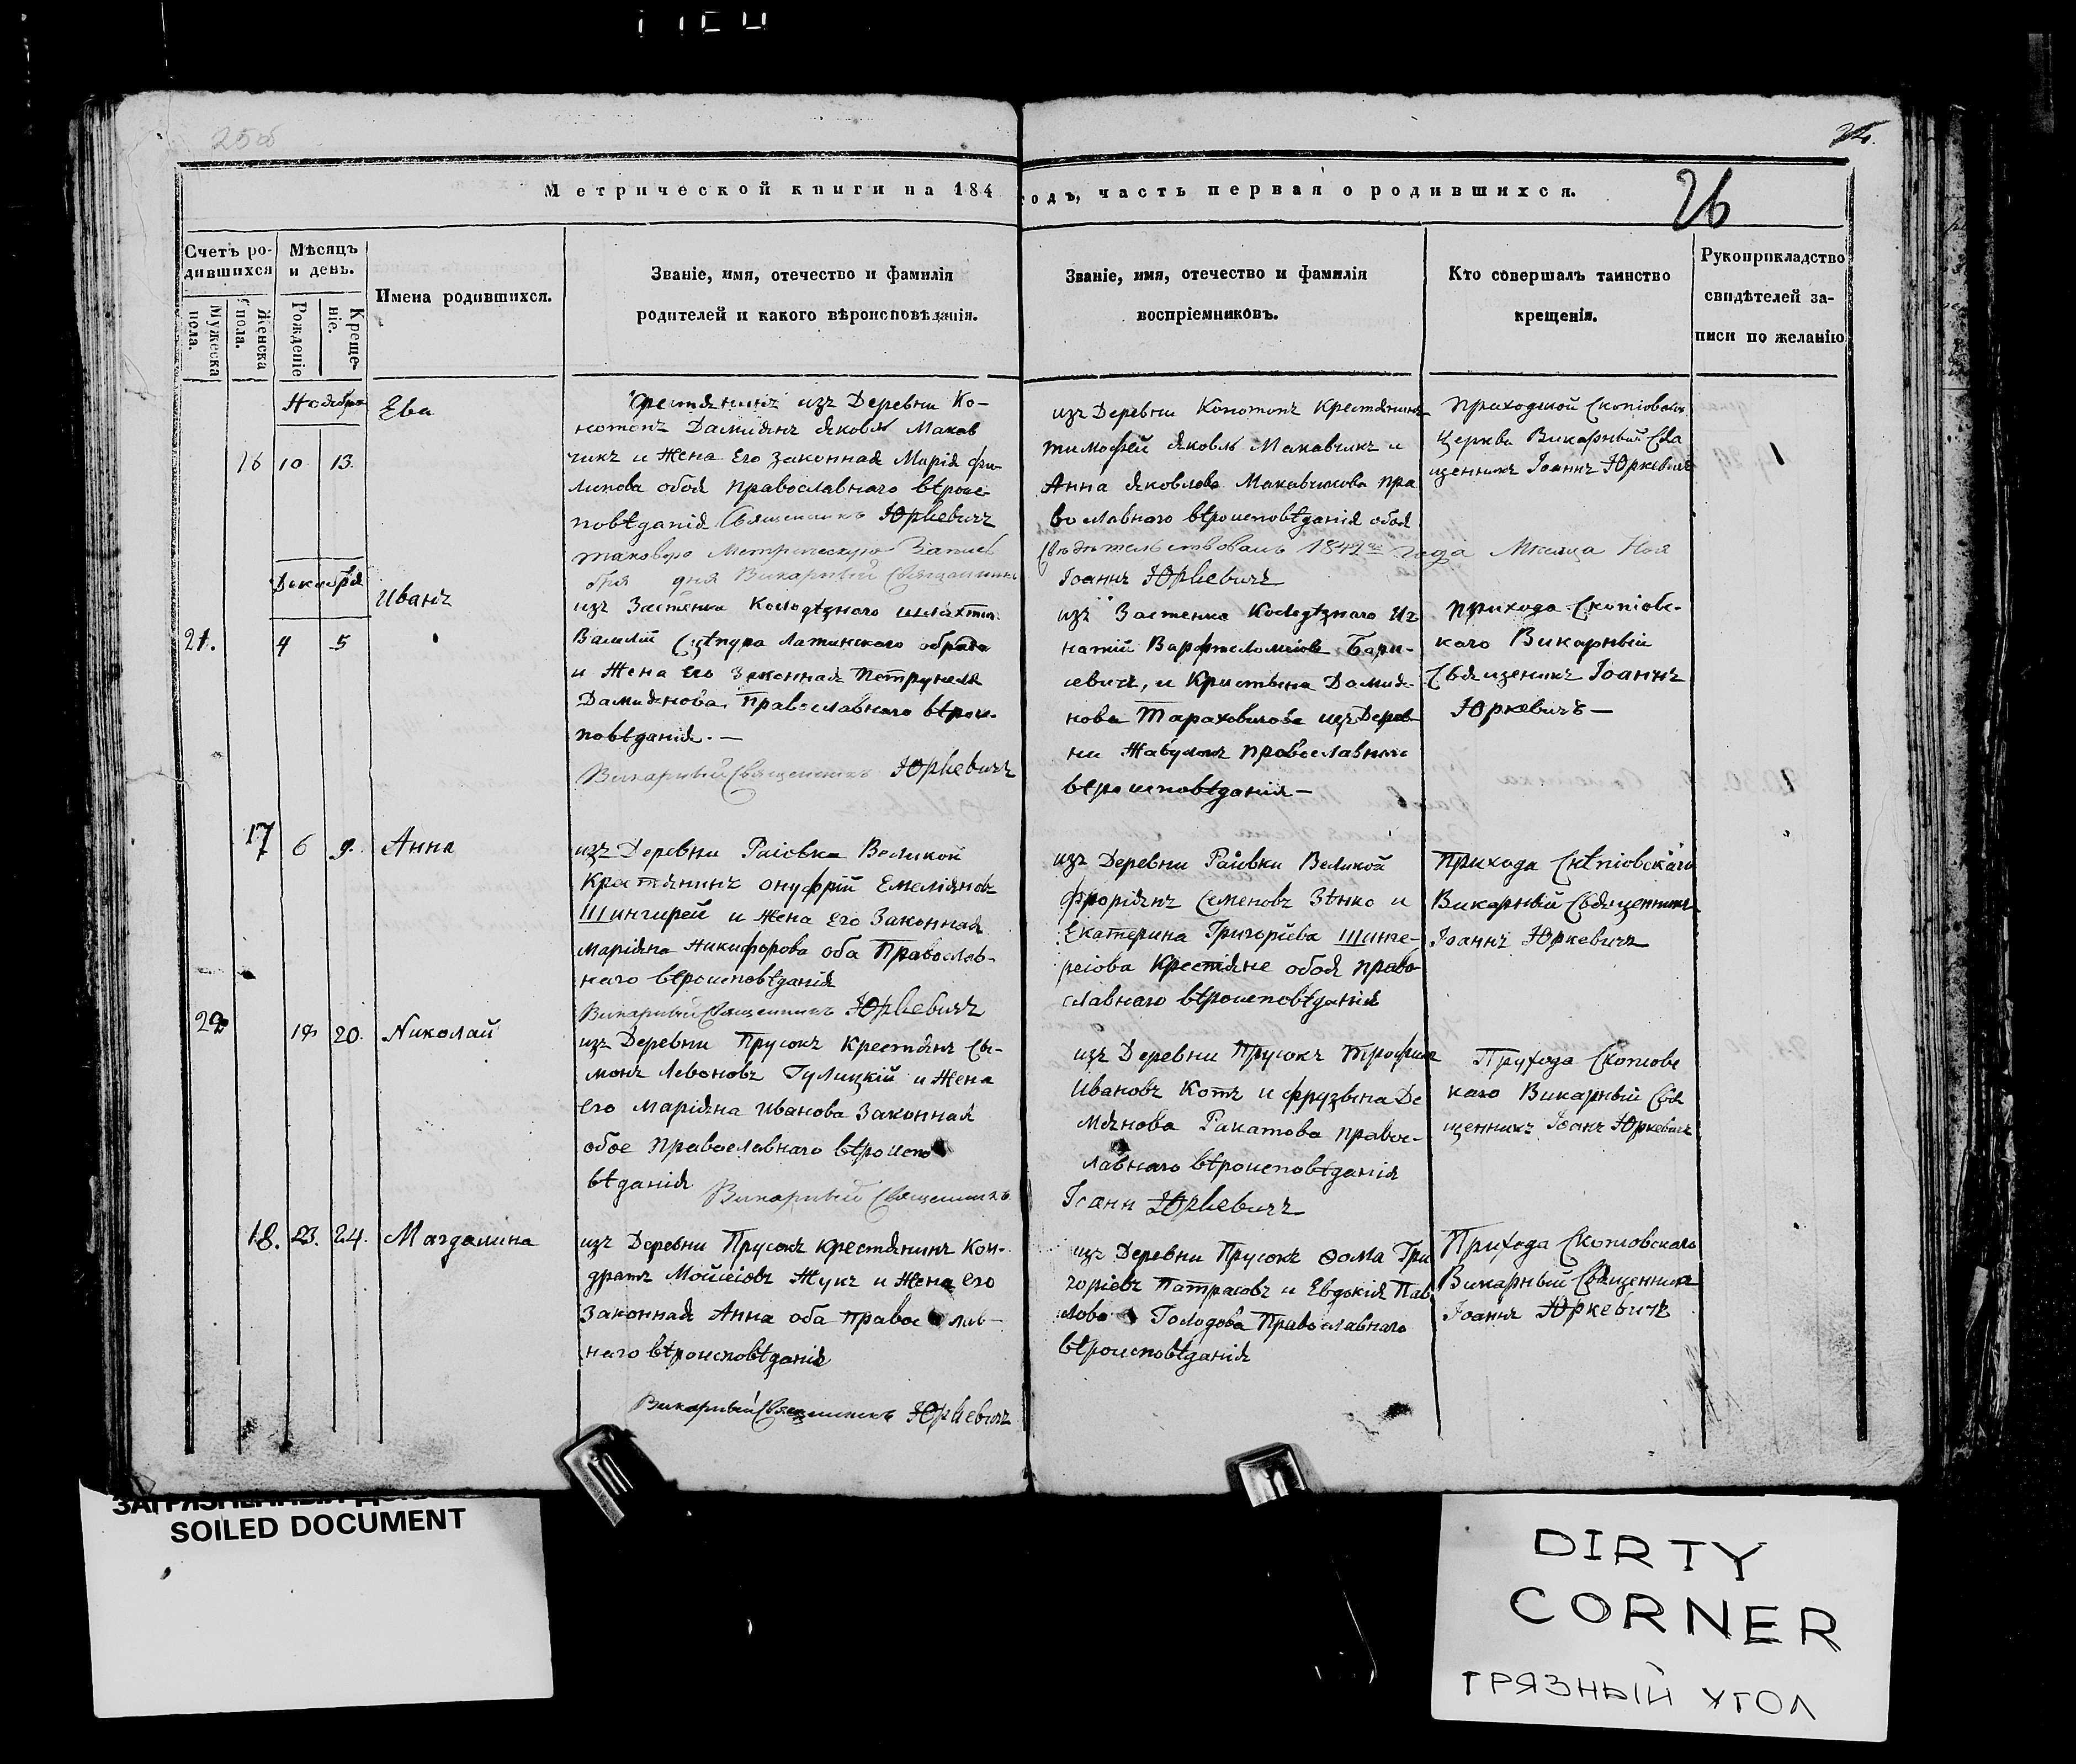 26.
Метрической книги на 184
годъ, часть первая о родившихся.
26
Счетъ ро-
дившихся
Мѣсяцъ
и день.
Имена родившихся.
Званіе, имя, отечество и фамилія
родителей и какого вѣроисповѣданія.
Званіе, имя, отечество и фамилія
воспріемниковъ.
Кто совершалъ таинство
крещенія.
Рукоприкладство
свидѣтелей за-
писи по желанію
Мужеска
пола.
Женска
пола.
Рожденіе
Креще-
ніе.
Ноября
16 10 13.
Ева
Крестянинъ изъ Деревни Ко-
потопъ Дамиянъ Яковл Макав
чикъ и Жена Его Законная Марія Фи-
липова обоя Православнаго вѣроис-
повѣданія Священникъ Юркевичъ
таковую Метрическую Запись
бря дня Викарный Священникъ
изъ Деревни Копотопъ Крестянинъ
тимофей Яковл Макавчикъ и
Анна Яковлова Макавчикова пра
вославнаго вѣроисповѣданія обоя
Свидѣтельствовалъ 1842го года Мѣсяца Ноя
Іоаннъ Юркевичъ
Приходской
Церкви Викарный Свя
щенникъ Іоаннъ Юркевичъ
Декабря
21. 4 5
Иванъ
изъ Застенка Колодѣзного
Василій Латинского обряда
и Жена Его Законная Петрунеля
Дамиянова Православнаго вѣроис-
повѣданія. —
Викарный Священникъ Юркевичъ
изъ Застенка Колодѣзного Иг
натій Варфтоломіовъ Бари-
севичъ, и Кристына Дамия-
нова Тараховичова изъ Дерев
ни Жабулокъ православнаго
вѣроисповѣданія —
Прихода
каго Викарный
Священикъ Іоаннъ
Юркевичъ —
17 6 9.
Анна
изъ Деревни Раіовки Великой
Крестянинъ Онуфрій Емеліяновъ
Шингирей и Жена его Законная
Маріяна Никифорова оба Православ-
наго вѣроисповѣданія
Викарный Священникъ Юркевичъ
изъ Деревни Раіовки Великой
Флоріянъ Семеновъ Зѣнко и
Екатерина Григоріева Шинге-
реіова Крестіяне обоя право
славнаго вѣроисповѣданія
Прихода
Викарный Священникъ
Іоаннъ Юркевичъ
22 19 20.
Николай
изъ Деревни Прусокъ Крестянъ Сы-
монъ Левоновъ Гулицкій и Жена
его Маріяна Иванова Законная
обое Православнаго вѣроиспо
вѣданія Викарный Священникъ
изъ Деревни Прусокъ Трофим
Ивановъ Котъ и Фрузына Де
мянова Ракатова правос-
лавнаго вѣроисповѣданія
Іоанн Юркевичъ
Прихода
каго Викарный Свя
щенникъ Іоанъ Юркевичъ
18. 23. 24.
Магдалина
изъ Деревни Прусокъ Крестянинъ Кон-
дратъ Мойсіовъ Жукъ и Жена его
Законная Анна оба правос лав-
наго вѣроисповѣданія
Викарный Священникъ Юркевичъ
изъ Деревни Прусокъ Ѳома Гри
горіевъ Патрасовъ и Евдокія Пав
лова Голодова Православнаго
вѣроисповѣданія
Прихода
Викарный Священникъ
Іоаннъ Юркевичъ
SOILED DOCUMENT
DIRTY
CORNER
ГРЯЗНЫЙ УГОЛ